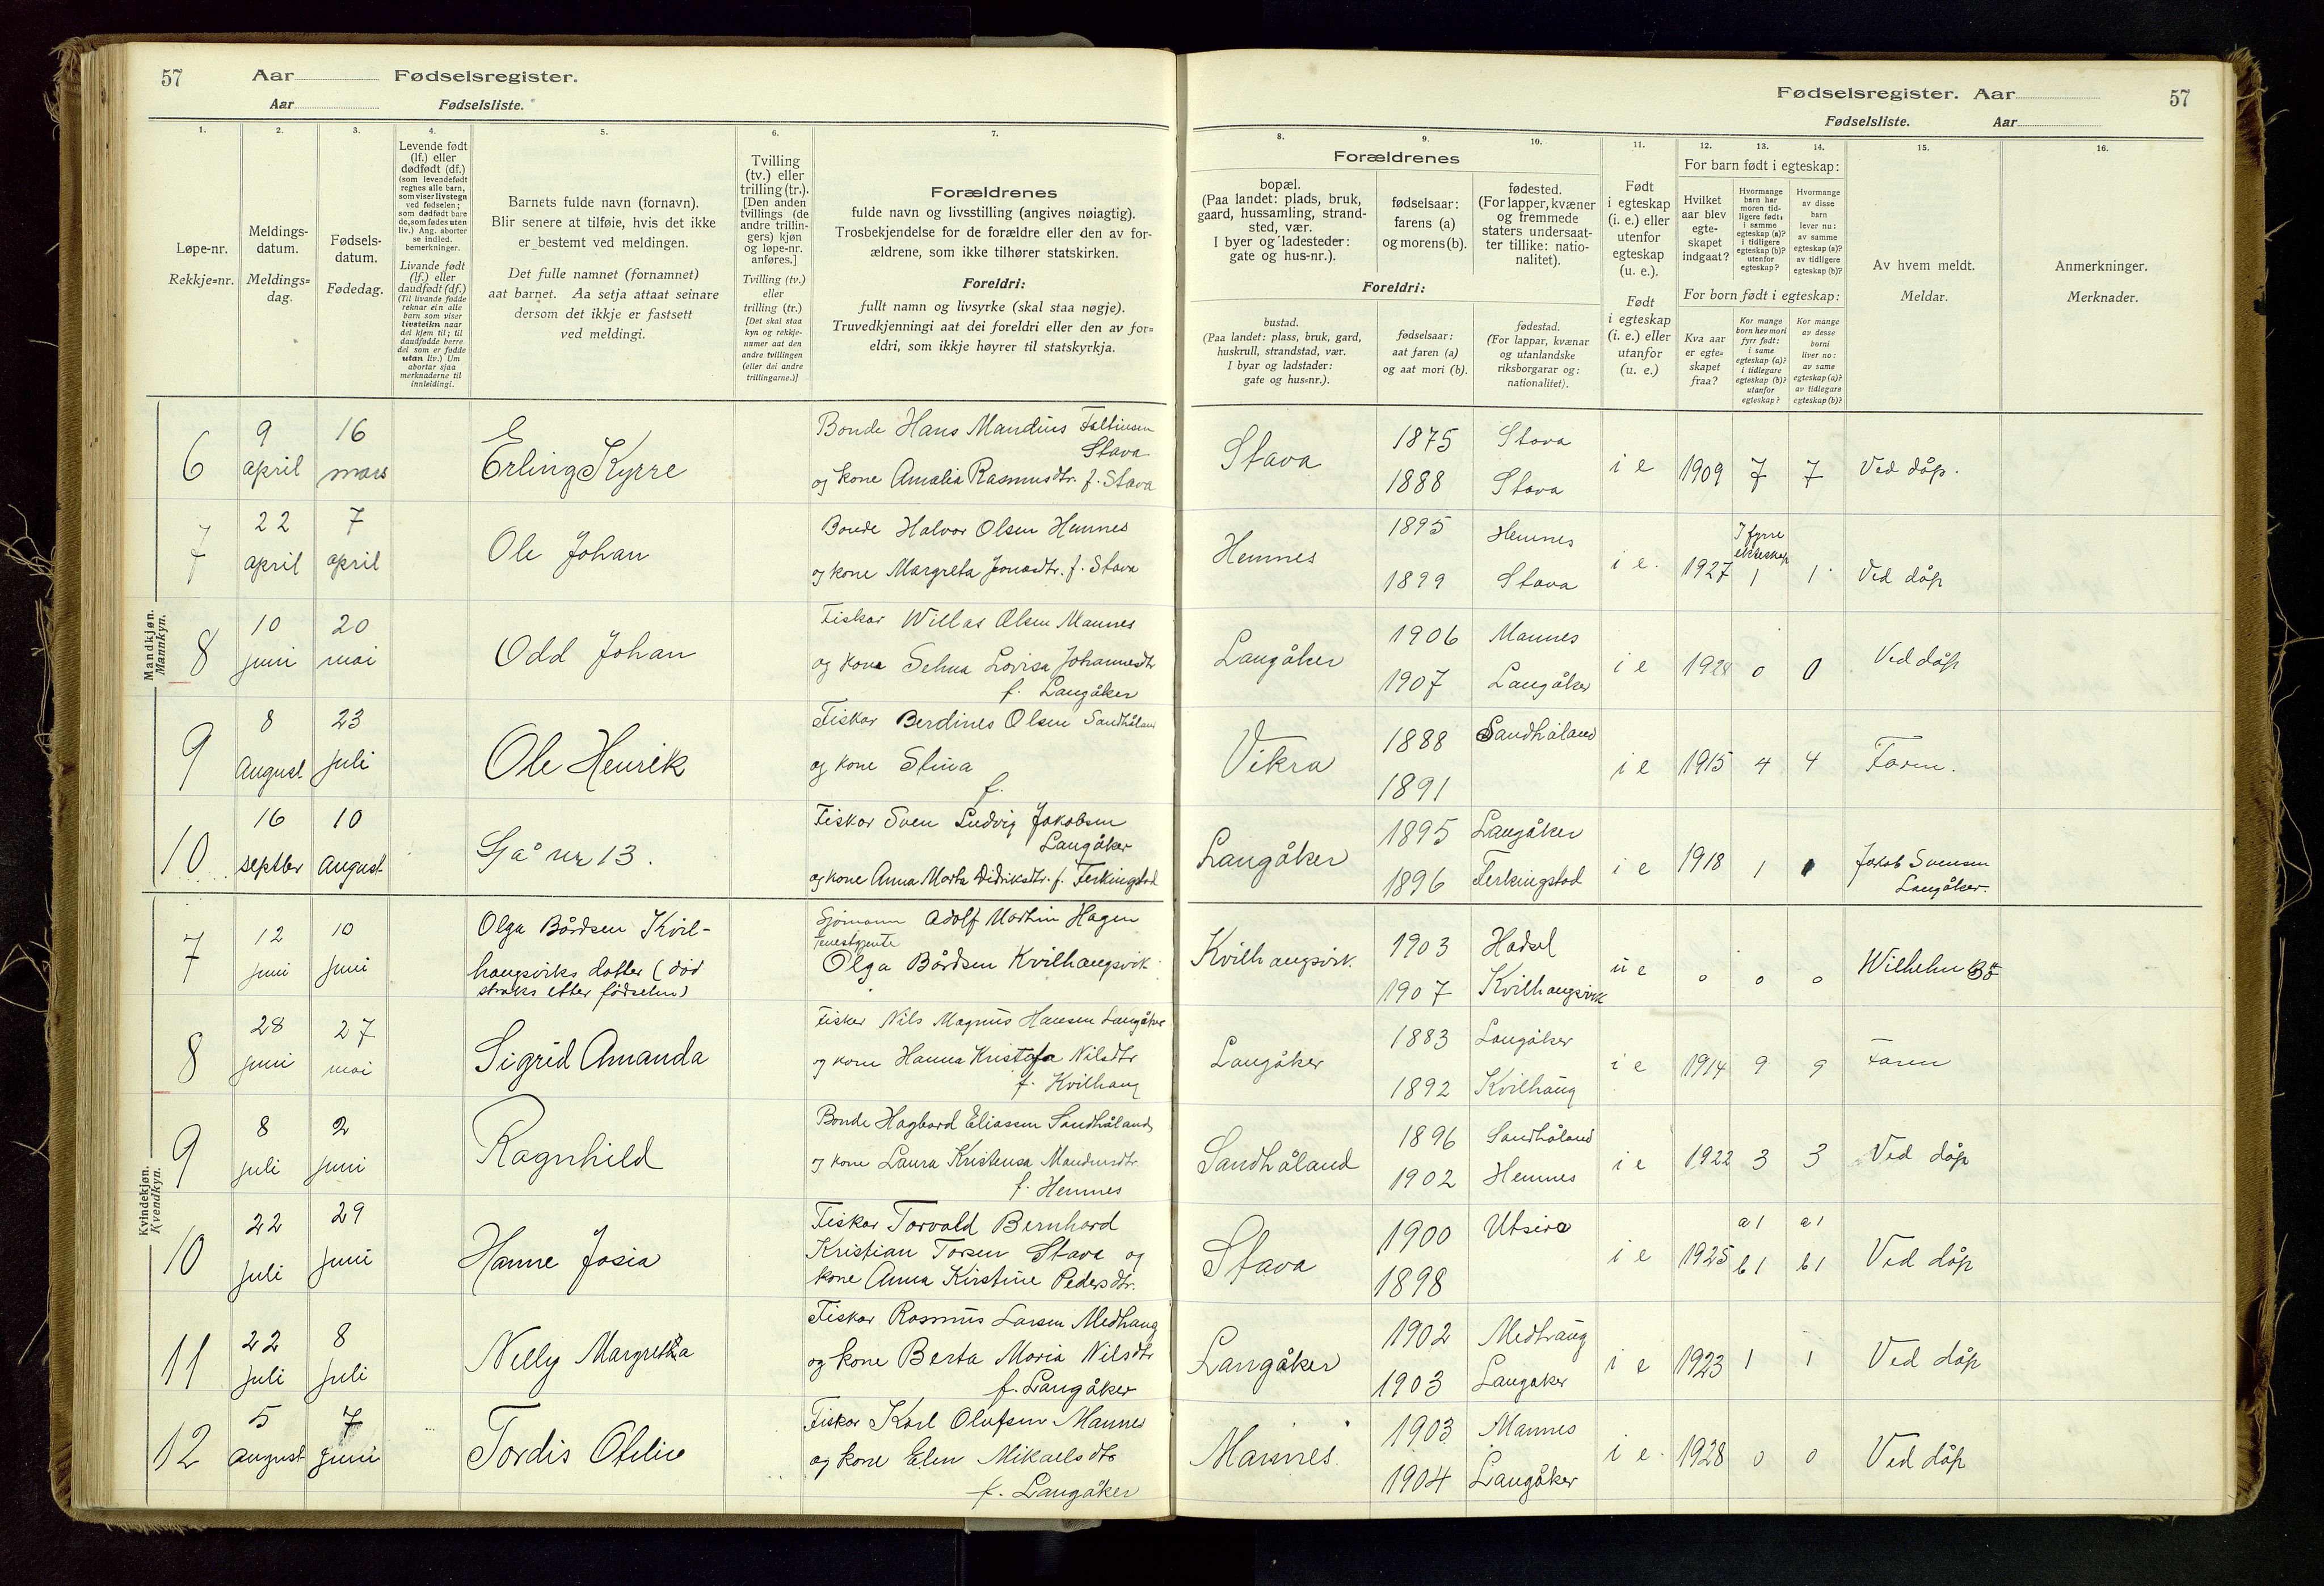 57 Aar Fødselsregister.
Aar Fødselsliste.
Fødselsregister. Aar 57
Fødselsliste. Aar
1. 2. 3. 4. 5. 6. 7.
Løpe-nr.
Rekkje=nr.
Meldings-
datum.
Meldings=
dag.
Fødsels-
datum.
Fødedag.
Levende født
(lf.) eller
dødfødt (df.)
(som levendefødt
regnes alle barn,
som viser livstegn
ved fødselen;
som dødfødt bare
de, som fødes uten
liv.) Ang. aborter
se indled.
bemerkninger.
Livande født
(lf.) eller
daudfødt (df.)
(Til livande fødde
reknar ein alle
born som viser
livsteikn naar
dei kjem til; til
daudfødde berre
dei som er fødde
utan liv.) Um
abortar sjaa
merknaderne til
innleidingi.
Barnets fulde navn (fornavn).
Blir senere at tilføie, hvis det ikke
er bestemt ved meldingen.
Det fulle namnet (fornamnet)
aat barnet. Aa setja attaat seinare
dersom det ikkje er fastsett
ved meldingi.
Tvilling
(tv.) eller
trilling (tr.).
[Den anden
tvillings (de
andre trillin-
gers) kjøn
og løpe-nr.
anføres.]
Tvilling (tv.)
eller
trilling (tr.)
[Det skal staa
kyn og rekkje-
numer aat den
andre tvillingen
(eller dei andre
trillingarne.)]
Forældrenes
fulde navn og livsstilling (angives nøiagtig).
Trosbekjendelse for de forældre eller den av for-
ældrene, som ikke tilhører statskirken.
Foreldri:
fullt namn og livsyrke (skal staa nøgje).
Truvedkjenningi aat dei foreldri eller den av for=
eldri, som ikkje høyrer til statskyrkja.
8. 9. 10. 11. 12. 13. 14. 15. 16.
Forældrenes
bopæl.
(Paa landet: plads, bruk,
gaard, hussamling, strand-
sted, vær.
I byer og ladesteder:
gate og hus-nr.).
fødselsaar:
farens (a)
og morens (b).
fødested.
(For lapper, kvæner
og fremmede
staters undersaat-
ter tillike: natio-
nalitet).
Foreldri:
bustad.
(Paa landet: plass, bruk, gard,
huskrull, strandstad, vær.
I byar og ladstader:
gate og hus=nr.).
fødselsaar:
aat faren (a)
og aat mori (b).
fødestad.
(For lappar, kvænar
og utanlandske
riksborgarar og:
nationalitet).
Født
i egteskap
(i. e.) eller
utenfor
egteskap
(u. e.).
Født
i egteskap
(i. e.) eller
utanfor
(u. e.)
For barn født i egteskap:
Hvilket
aar blev
egte-
skapet
indgaat?
Hvormange
barn har
moren tid-
ligere født:
i samme
egteskap (a)?
i tidligere
egteskap (b)?
utenfor
egteskap?
Hvormange
av disse
barn
lever nu:
av samme
egteskap (a)?
av tidligere
egteskap (b)?
For born født i egteskap:
Kva aar
er egte=
skapet
fraa?
Kor mange
born hev mori
fyrr født:
i same
egteskap (a)?
i tidlegare
egteskap (b)?
utanfor
egteskap?
Kor mange
av desse
borni
liver no:
av same
egteskap (a)?
av tidlegare
egteskap (b)?
Av hvem meldt.
Meldar.
Anmerkninger.
Merknader.
Mandkjøn.
Mannkyn.
6 9 april 16 mars Erling Kyrre
Bonde Hans Mandius Faltinsen
Stava
og kone Amalia Rasmusdtr. f. Stava
Stava 1875 Stava
1888 Stava
i e 1909 7 7 Ved dåp.
7 22 april 7 april Ole Johan
Bonde Halvor Olsen Hemnes
og kone Margreta Jonasdtr. f. Stava
Hemnes 1895 Hemnes
1899 Stava
i e. 1927 I fyrre ekteskap 1 1 Ved dåp
8 10 juni 20 mai Odd Johan
Fiskar Willas Olsen Mannes
og kona Selma Lovisa Johannesdtr
f. Langåker
Langåker 1906 Mannes
1907 Langåker
i e 1928 0 0 Ved dåp
9 8 August 23 juli Ole Henrik
Fiskar Berdines Olsen Sandhåland
og kone Stina
f.
Vikra 1888 Sandhåland
1891
i e 1915 4 4 Faren.
10 16 septbr 10 August Sjå nr 13.
Fiskar Sven Ludvig Jakobsen
Langåker
og kone Anna Marta Didriksdtr. f. Ferkingstad
Langåker 1895 Langåker
1896 Ferkingstad
i e 1918 1 1 Jakob Svensen
Langåker.
Kvindekjøn.
Kvendkyn.
7 12 juni 10 juni Olga Bårdsen Kvil-
haugsviks dotter (død
straks etter fødselen)
Sjømann Adolf Martin Hagen
Tenestgjente
Olga Bårdsen Kvilhaugsvik
Kvilhaugsvik. 1903 Hadsel
1907 Kvilhaugsvik
u e 0 0 0 Wilhelm Bö
8 28 juni 27 mai Sigrid Amanda
Fisker Nils Magnus Hansen Langåker
og kone Hanna Kristofa Nilsdtr
f. Kvilhaug
Langåker 1883 Langåker
1892 Kvilhaug
i e 1914 9 9 Faren
9 8 juli 2 juni Ragnhild
Bonde Hagbard Eliassen Sandhåland
og kone Laura Kristensa Mandiusdtr
f. Hemnes
Sandhåland 1896 Sandhåland
1902 Hemnes
i e 1922 3 3 Ved dåp
10 22 juli 29 juni Hanne Josia
Fiskar Torvald Bernhard
Kristian Torsen Stava og
kone Anna Kirstine Pedersdtr.
Stava 1900 Utsira
1898
i e 1925 a 1 b 1 a 1 b 1 Ved dåp
11 22 juli 8 juli Nelly Margretha
Fiskar Rasmus Larsen Medhaug
og kone Berta Maria Nilsdtr
f. Langåker
Langåker 1902 Medhaug
1903 Langaker
i e 1923 1 1 Ved dåp
12 5 august 7 juni Tordis Otelie
Fiskar Karl Olufsen Mannes
og kone Elen Mikaelsdtr
f. Langåker
Mannes. 1903 Mannes
1904 Langåker
i e. 1928 0 0 Ved dåp